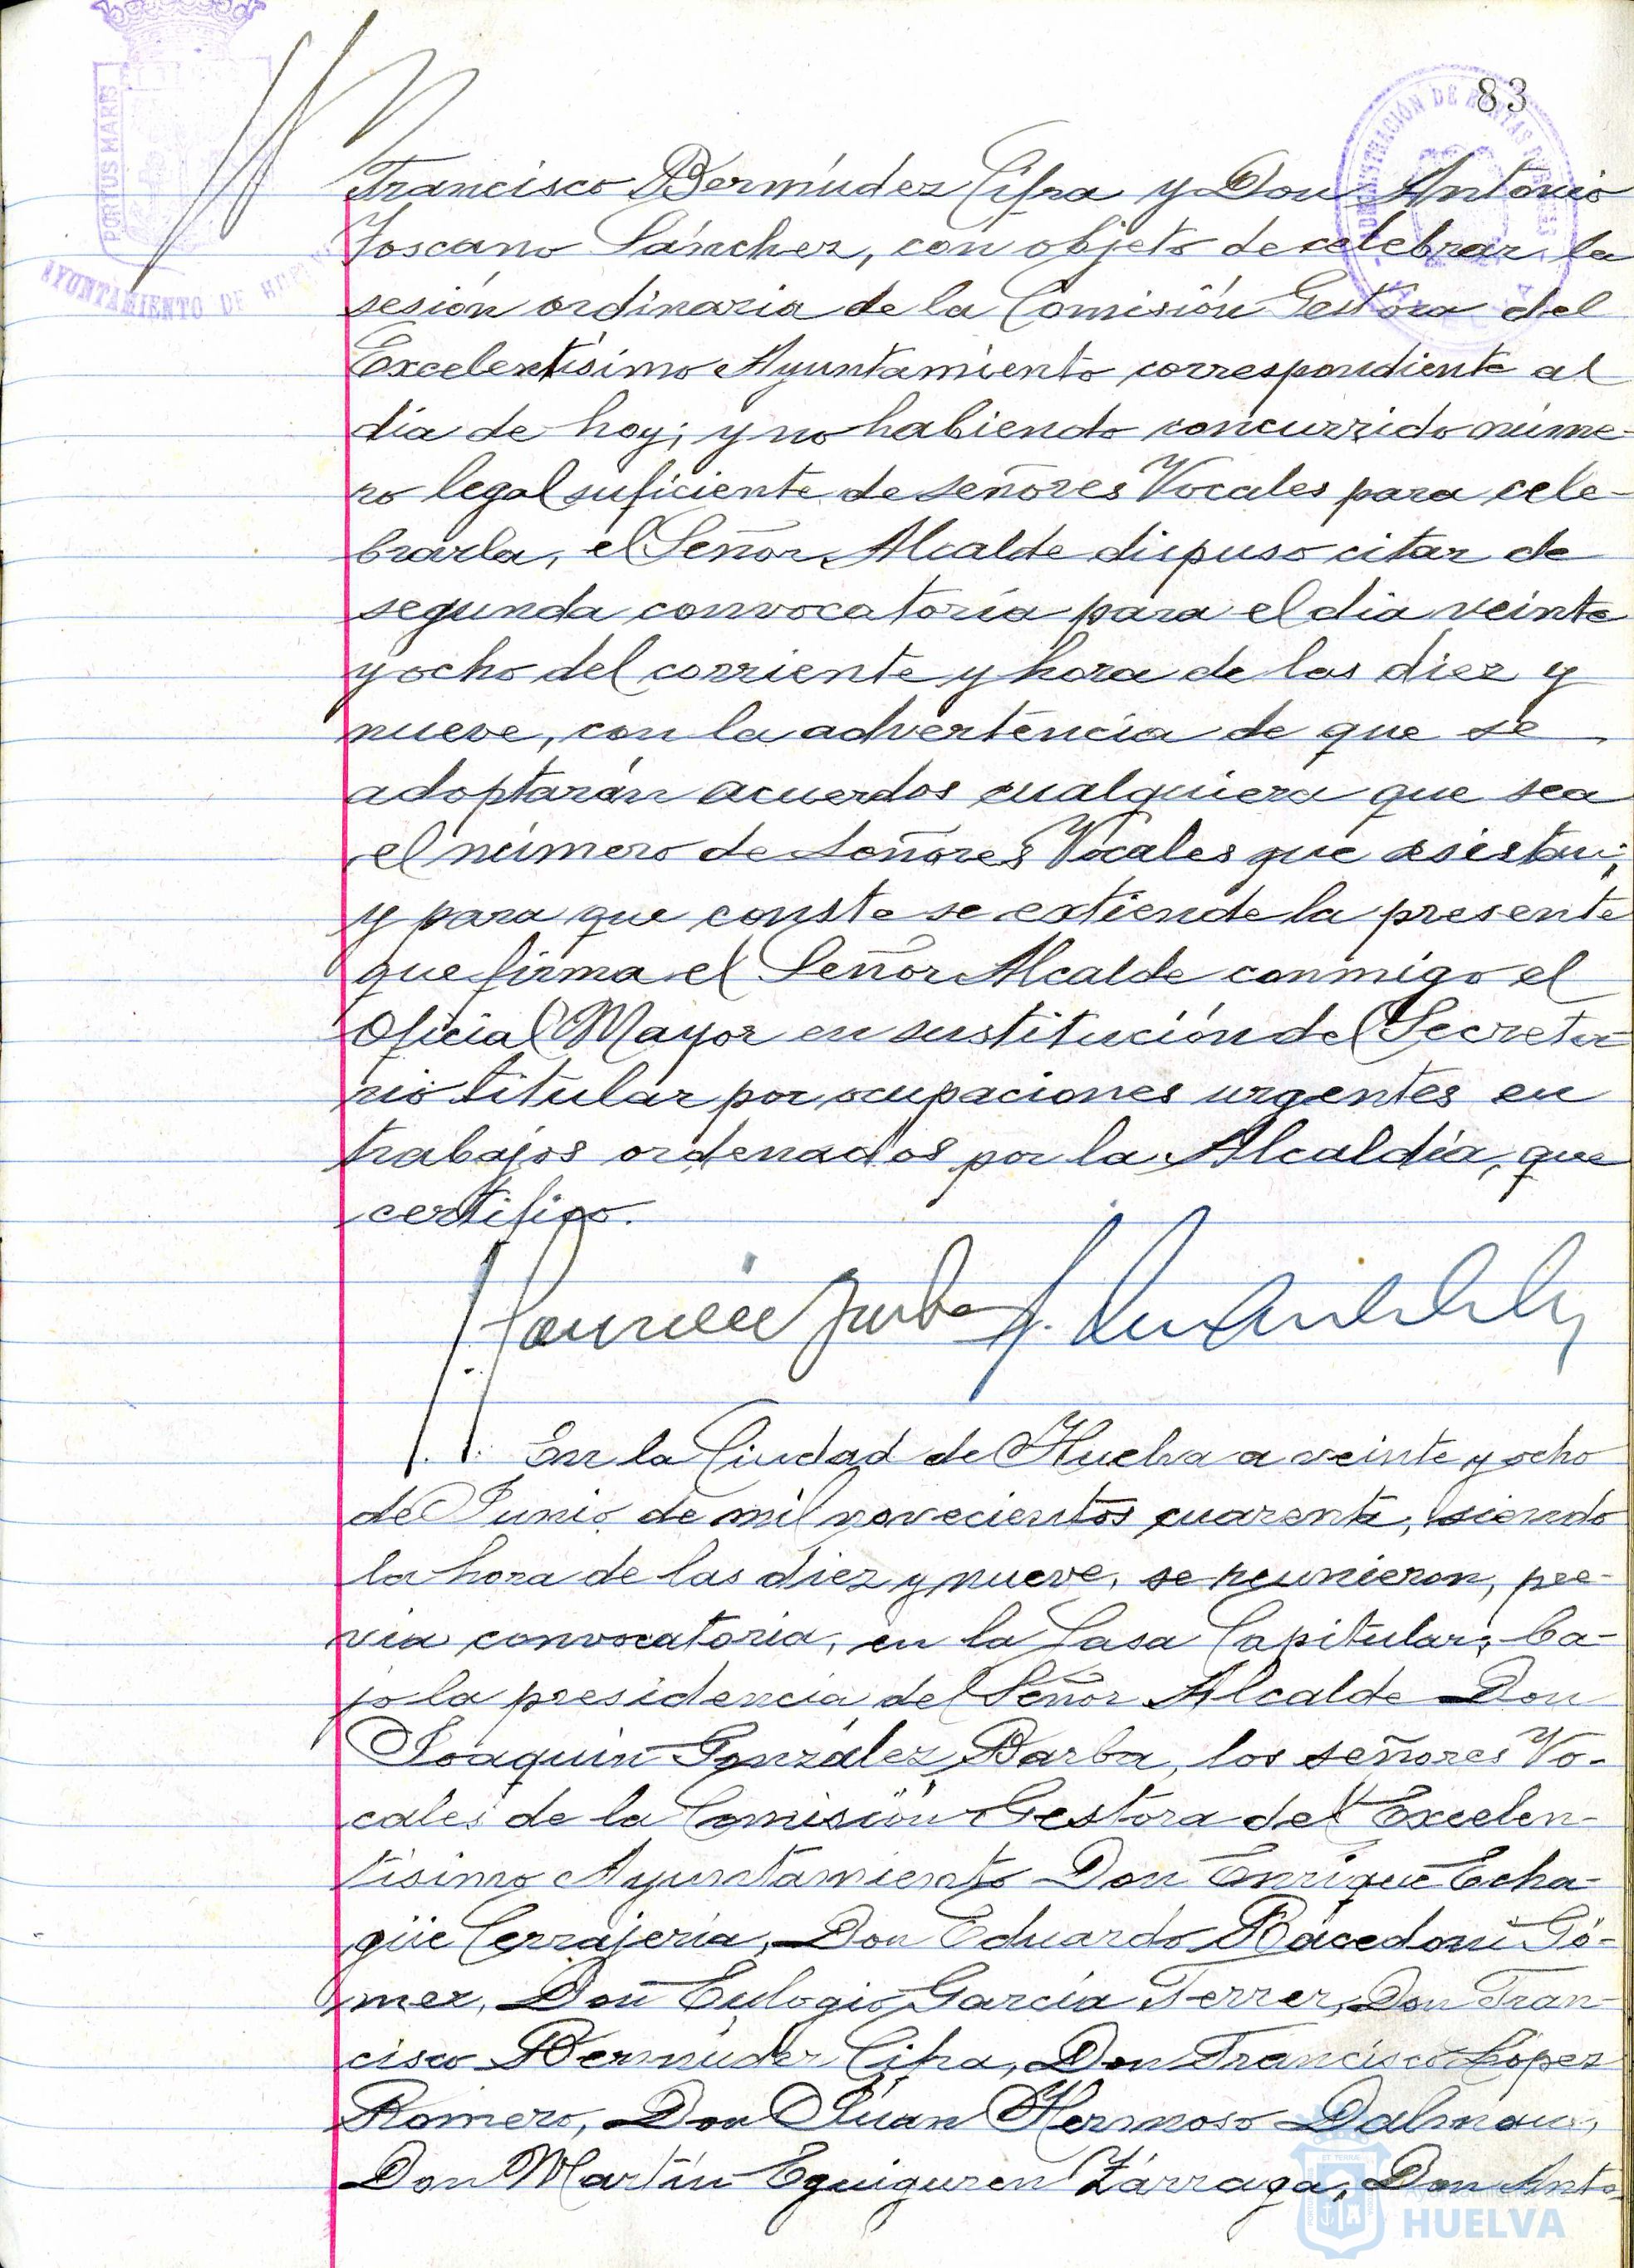 83
PORTUS MARIS
AYUNTAMIENTO DE HUELVA
ADMINISTRACIÓN DE RENTAS PÚBLICAS
Francisco Bermúdez Cifra y Don Antonio
Toscano Sánchez, con objeto de celebrar la
sesión ordinaria de la Comisión Gestora del
Excelentísimo Ayuntamiento correspondiente al
día de hoy; y no habiendo concurrido núme-
ro legal suficiente de señores Vocales para cele-
brarla, el Señor Alcalde dispuso citar de
segunda convocatoria para el dia veinte
y ocho del corriente y hora de las diez y
nueve, con la advertencia de que se
adoptarán acuerdos cualquiera que sea
el número de señores Vocales que asistan;
y para que conste se extiende la presente
que firma el Señor Alcalde conmigo el
Oficial Mayor en sustitución del Secreta-
rio titular por ocupaciones urgentes en
trabajos ordenados por la Alcaldía, que
certifico.
En la Ciudad de Huelva a veinte y ocho
de Junio de mil novecientos cuarenta, siendo
la hora de las diez y nueve, se reunieron, pre-
via convocatoria, en la Casa Capitular, ba-
jo la presidencia del Señor Alcalde Don
Joaquin González Barba, los señores Vo-
cales de la Comisión Gestora del Excelen-
tísimo Ayuntamiento Don Enrique Echa-
güe Cerrajería, Don Eduardo Rácedoni Gó-
mez, Don Eulogio García Ferrer, Don Fran-
cisco Bermúdez Cifra, Don Francisco López
Romero, Don Juan Hermoso Dalmau,
Don Martín Eguiguren Zárraga, Don Anto-
HUELVA